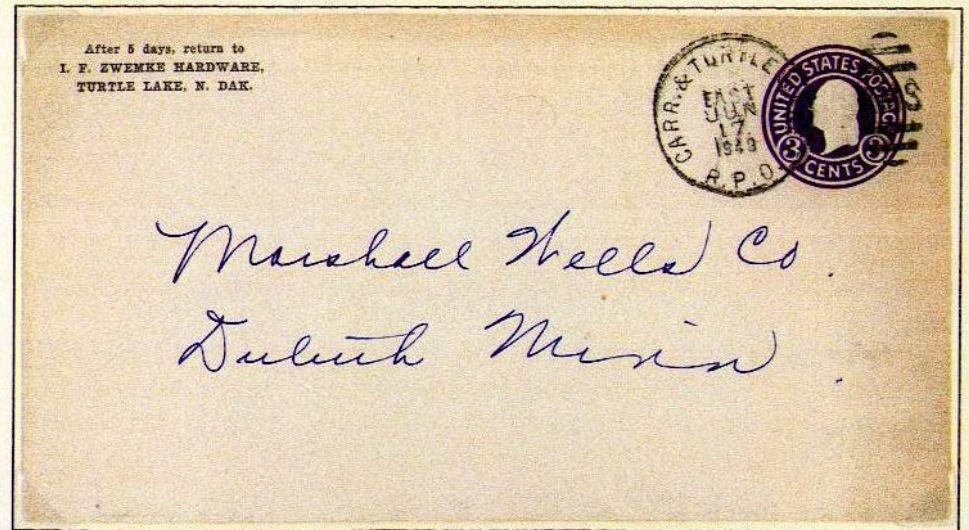 After 5 days, return to
I. F. ZWEMKE HARDWARE,
TURTLE LAKE, N. DAK.
CARR. & TURTLE
EAST
JUN
17
1949
R.P.O.
UNITED STATES POSTAGE
3 CENTS 3
Marshall Wells Co.
Duluth Minn